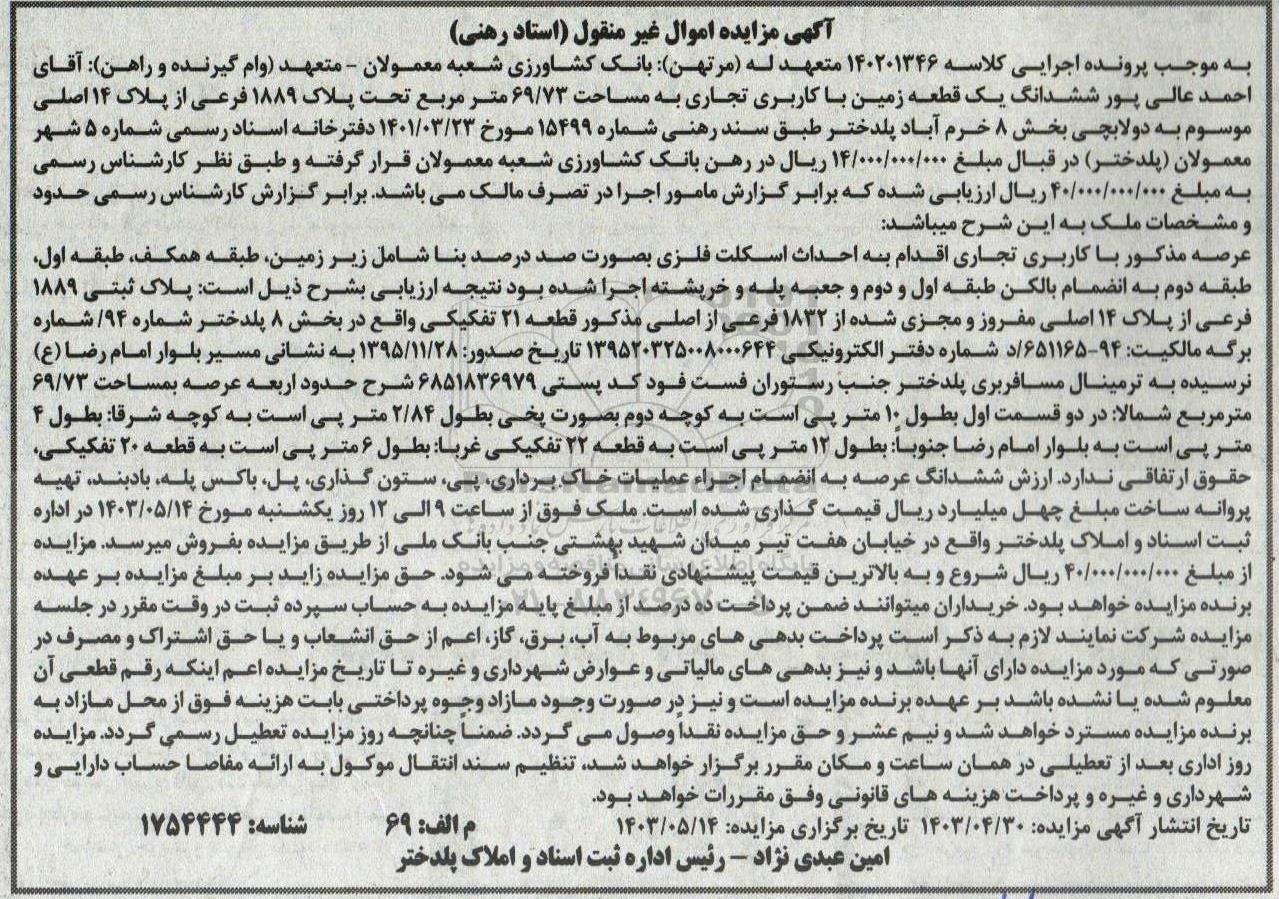 آگهی مزایده اموال غیر منقول (اسناد رهنی)
به موجب پرونده اجرایی کلاسه ۱۴۰۲۰۱۳۴۶ متعهد له (مرتهن): بانک کشاورزی شعبه معمولان - متعهد (وام گیرنده و راهن): آقای
احمد عالی پور ششدانگ یک قطعه زمین با کاربری تجاری به مساحت ۶۹/۷۳ متر مربع تحت پلاک ۱۸۸۹ فرعی از پلاک ۱۴ اصلی
موسوم به دولابچی بخش ۸ خرم آباد پلدختر طبق سند رهنی شماره ۱۵۴۹۹ مورخ ۱۴۰۱/۰۳/۲۳ دفترخانه اسناد رسمی شماره ۵ شهر
معمولان (پلدختر) در قبال مبلغ ۱۴/۰۰۰/۰۰۰/۰۰۰ ریال در رهن بانک کشاورزی شعبه معمولان قرار گرفته و طبق نظر کارشناس رسمی
به مبلغ ۴۰/۰۰۰/۰۰۰/۰۰۰ ریال ارزیابی شده که برابر گزارش مامور اجرا در تصرف مالک می باشد. برابر گزارش کارشناس رسمی حدود
و مشخصات ملک به این شرح میباشد:
عرصه مذکور با کاربری تجاری اقدام به احداث اسکلت فلزی بصورت صد درصد بنا شامل زیر زمین، طبقه همکف، طبقه اول،
طبقه دوم به انضمام بالکن طبقه اول و دوم و جعبه پله و خرپشته اجرا شده بود نتیجه ارزیابی بشرح ذیل است: پلاک ثبتی ۱۸۸۹
فرعی از پلاک ۱۴ اصلی مفروز و مجزی شده از ۱۸۳۲ فرعی از اصلی مذکور قطعه ۲۱ تفکیکی واقع در بخش ۸ پلدختر شماره ۹۴/ شماره
برگه مالکیت: ۹۴-۶۵۱۱۶۵/د شماره دفتر الکترونیکی ۱۳۹۵۲۰۳۲۵۰۰۸۰۰۰۶۴۴ تاریخ صدور: ۱۳۹۵/۱۱/۲۸ به نشانی مسیر بلوار امام رضا (ع)
نرسیده به ترمینال مسافربری پلدختر جنب رستوران فست فود کد پستی ۶۸۵۱۸۳۶۹۷۹ شرح حدود اربعه عرصه بمساحت ۶۹/۷۳
مترمربع شمالا: در دو قسمت اول بطول ۱۰ متر پی است به کوچه دوم بصورت پخی بطول ۲/۸۴ متر پی است به کوچه شرقا: بطول ۴
متر پی است به بلوار امام رضا جنوباً: بطول ۱۲ متر پی است به قطعه ۲۲ تفکیکی غربا: بطول ۶ متر پی است به قطعه ۲۰ تفکیکی،
حقوق ارتفاقی ندارد. ارزش ششدانگ عرصه به انضمام اجراء عملیات خاک برداری، پی، ستون گذاری، پل، باکس پله، بادبند، تهیه
پروانه ساخت مبلغ چهل میلیارد ریال قیمت گذاری شده است. ملک فوق از ساعت ۹ الی ۱۲ روز یکشنبه مورخ ۱۴۰۳/۰۵/۱۴ در اداره
ثبت اسناد و املاک پلدختر واقع در خیابان هفت تیر میدان شهید بهشتی جنب بانک ملی از طریق مزایده بفروش میرسد. مزایده
از مبلغ ۴۰/۰۰۰/۰۰۰/۰۰۰ ریال شروع و به بالاترین قیمت پیشنهادی نقدا فروخته می شود. حق مزایده زاید بر مبلغ مزایده بر عهده
برنده مزایده خواهد بود. خریداران میتوانند ضمن پرداخت ده درصد از مبلغ پایه مزایده به حساب سپرده ثبت در وقت مقرر در جلسه
مزایده شرکت نمایند لازم به ذکر است پرداخت بدهی های مربوط به آب، برق، گاز، اعم از حق انشعاب و یا حق اشتراک و مصرف در
صورتی که مورد مزایده دارای آنها باشد و نیز بدهی های مالیاتی و عوارض شهرداری و غیره تا تاریخ مزایده اعم اینکه رقم قطعی آن
معلوم شده یا نشده باشد بر عهده برنده مزایده است و نیز در صورت وجود مازاد وجوه پرداختی بابت هزینه فوق از محل مازاد به
برنده مزایده مسترد خواهد شد و نیم عشر و حق مزایده نقداً وصول می گردد. ضمناً چنانچه روز مزایده تعطیل رسمی گردد. مزایده
روز اداری بعد از تعطیلی در همان ساعت و مکان مقرر برگزار خواهد شد، تنظیم سند انتقال موکول به ارائه مفاصا حساب دارایی و
شهرداری و غیره و پرداخت هزینه های قانونی وفق مقررات خواهد بود.
تاریخ انتشار آگهی مزایده: ۱۴۰۳/۰۴/۳۰ تاریخ برگزاری مزایده: ۱۴۰۳/۰۵/۱۴ م الف: ۶۹ شناسه: ۱۷۵۴۴۴۴
امین عبدی نژاد - رئیس اداره ثبت اسناد و املاک پلدختر